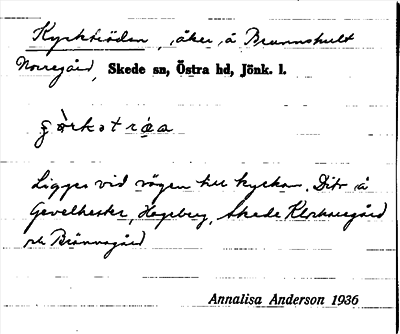 Kyrkträden, åker, å Brunnshult
Norregård, Skede sn, Östra hd, Jönk. l.
Ligger vid vägen till kyrkan. Dito å
Gevelhester, Hageberg, Skede Klockaregård
och Brännagård
Annalisa Anderson 1936